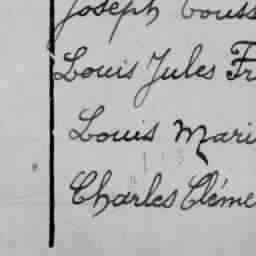 Joseph Touss
Louis Jules Fr
Louis Mari
Charles Cléme